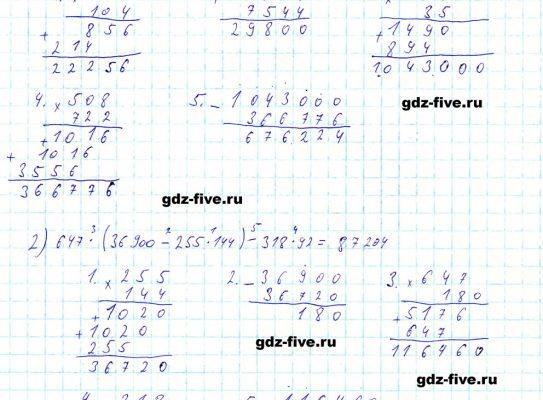 104
7544
35
+ 856
29800
+ 1490
214
894
22256
1043000
4. × 508
5. - 1043000
722
366776
+ 1016
676224
+ 1016
3556
366776
gdz-five.ru
gdz-five.ru
2) 647 · (36900 - 255 · 144) - 318 · 92 = 87204
3 2 1 5 4
1. × 255
2. - 36900
3. × 647
144
36720
180
+ 1020
180
+ 5176
+ 1020
647
255
116460
36720
gdz-five.ru
gdz-five.ru